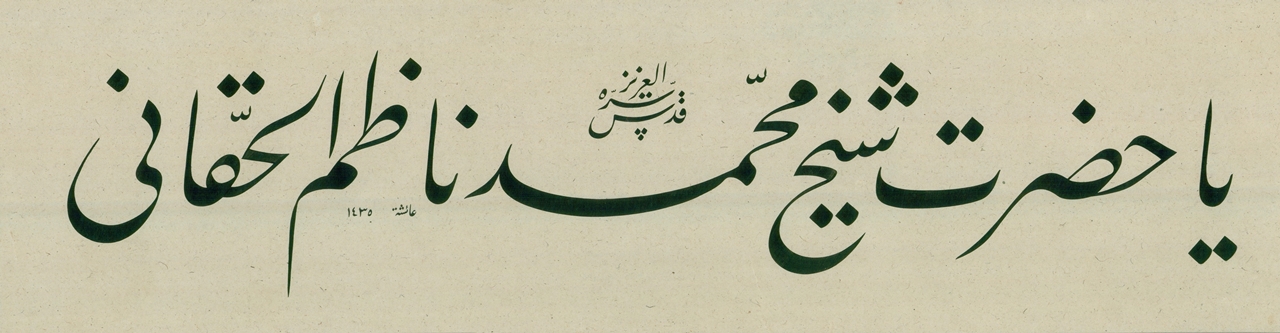 يا حضرت شيخ محمّد ناظم الحقّانى
قدّس سرّه العزيز
عائشة ١٤٣٥